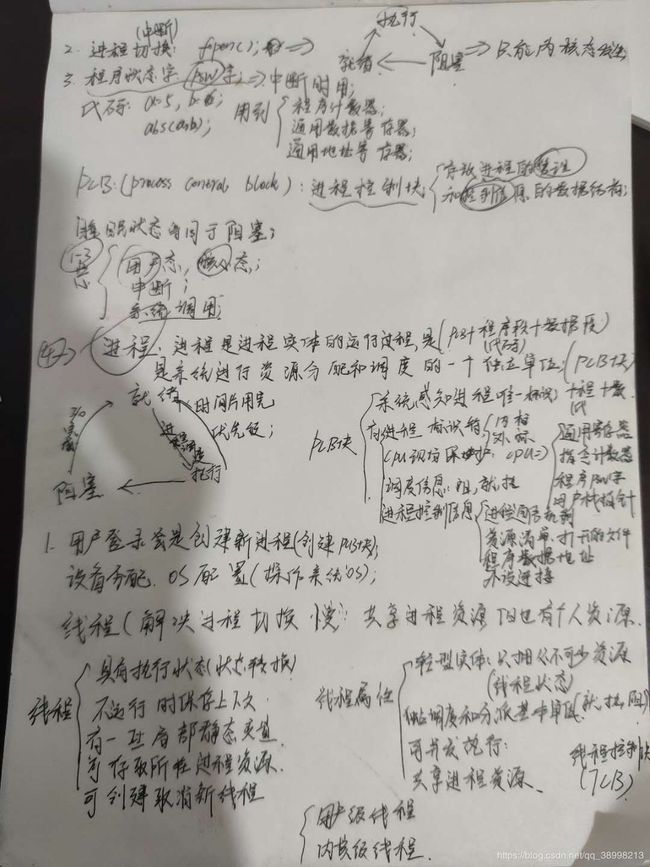 (中断)
2. 进程切换: fopen(); ⇒
执行
就绪 阻塞 ⇒ 只能内核态
3. 程序状态字 (PSW字) ⇒ 中断时用;
代码: a=5, b=6; 用到
abs(a,b);
程序计数器;
通用数据寄存器;
通用地址寄存器;
PCB:(process control block): 进程控制块
存放进程的管理
和控制信息的数据结构;
睡眠状态等同于阻塞;
用户态, 核心态,;
中断;
系统调用;
进程: 进程是进程实体的运行过程,是(PCB+程序段+数据段)
(代码)
是系统进行资源分配和调度的一个独立单位,(PCB块)
就绪
时间片用完
优先级;
进程调度
I/O完成
阻塞 执行
PCB块
系统感知进程唯一标识:
有进程标识符
内标
外标
CPU现场保护: CPU⇒
通用寄存器
指令计数器
程序PSW字
用户栈指针
调度信息: 阻,就,执
进程控制信息
进程同步机制
资源清单,打开的文件
程序数据地址
外设连接
1. 用户登录会是创建新进程(创建PCB块);
设备分配, OS配置(操作系统OS);
线程(解决进程切换慢): 共享进程资源 但也有个人资源.
线程
具有执行状态(状态转换)
不运行时保存上下文
有一些局部静态变量
可存取所在进程资源.
可创建取消新线程
线程属性
轻型实体: 只拥必不可少资源
(线程状态)
独立调度和分派基本单位(就,执,阻)
可并发执行:
共享进程资源.
线程控制块
(TCB)
用户级线程
内核级线程.
https://blog.csdn.net/qq_38998213